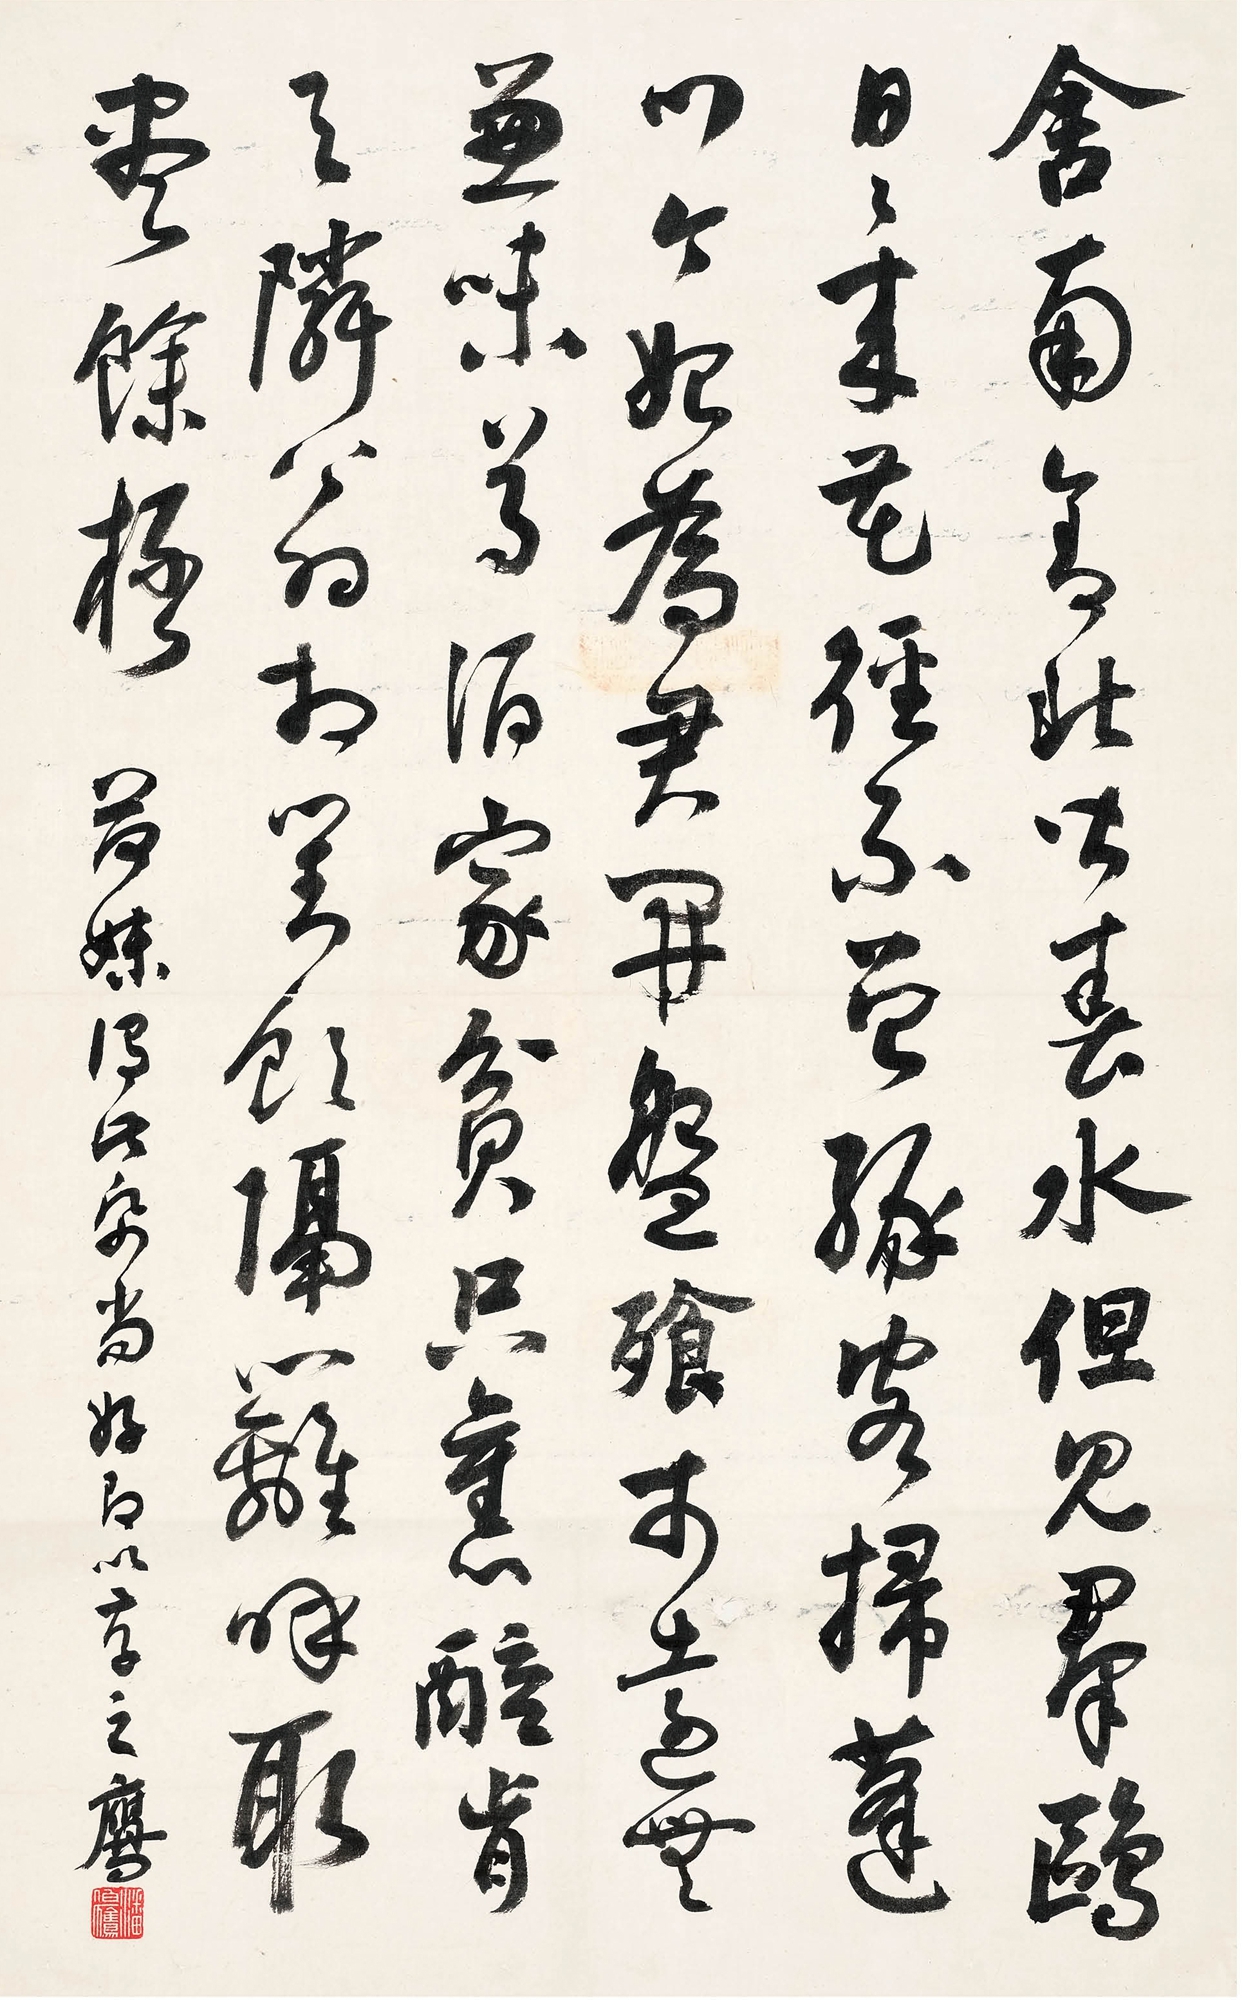 舍南舍北皆春水但見羣鷗
日々來花徑不曾緣客掃蓬
門今始為君開盤飱市遠無
兼味尊酒家貧只舊醅肯
與隣翁相對飲隔籬呼取
盡餘杯
荷妹得此帋尚好即以存之鷹
潘伯鷹